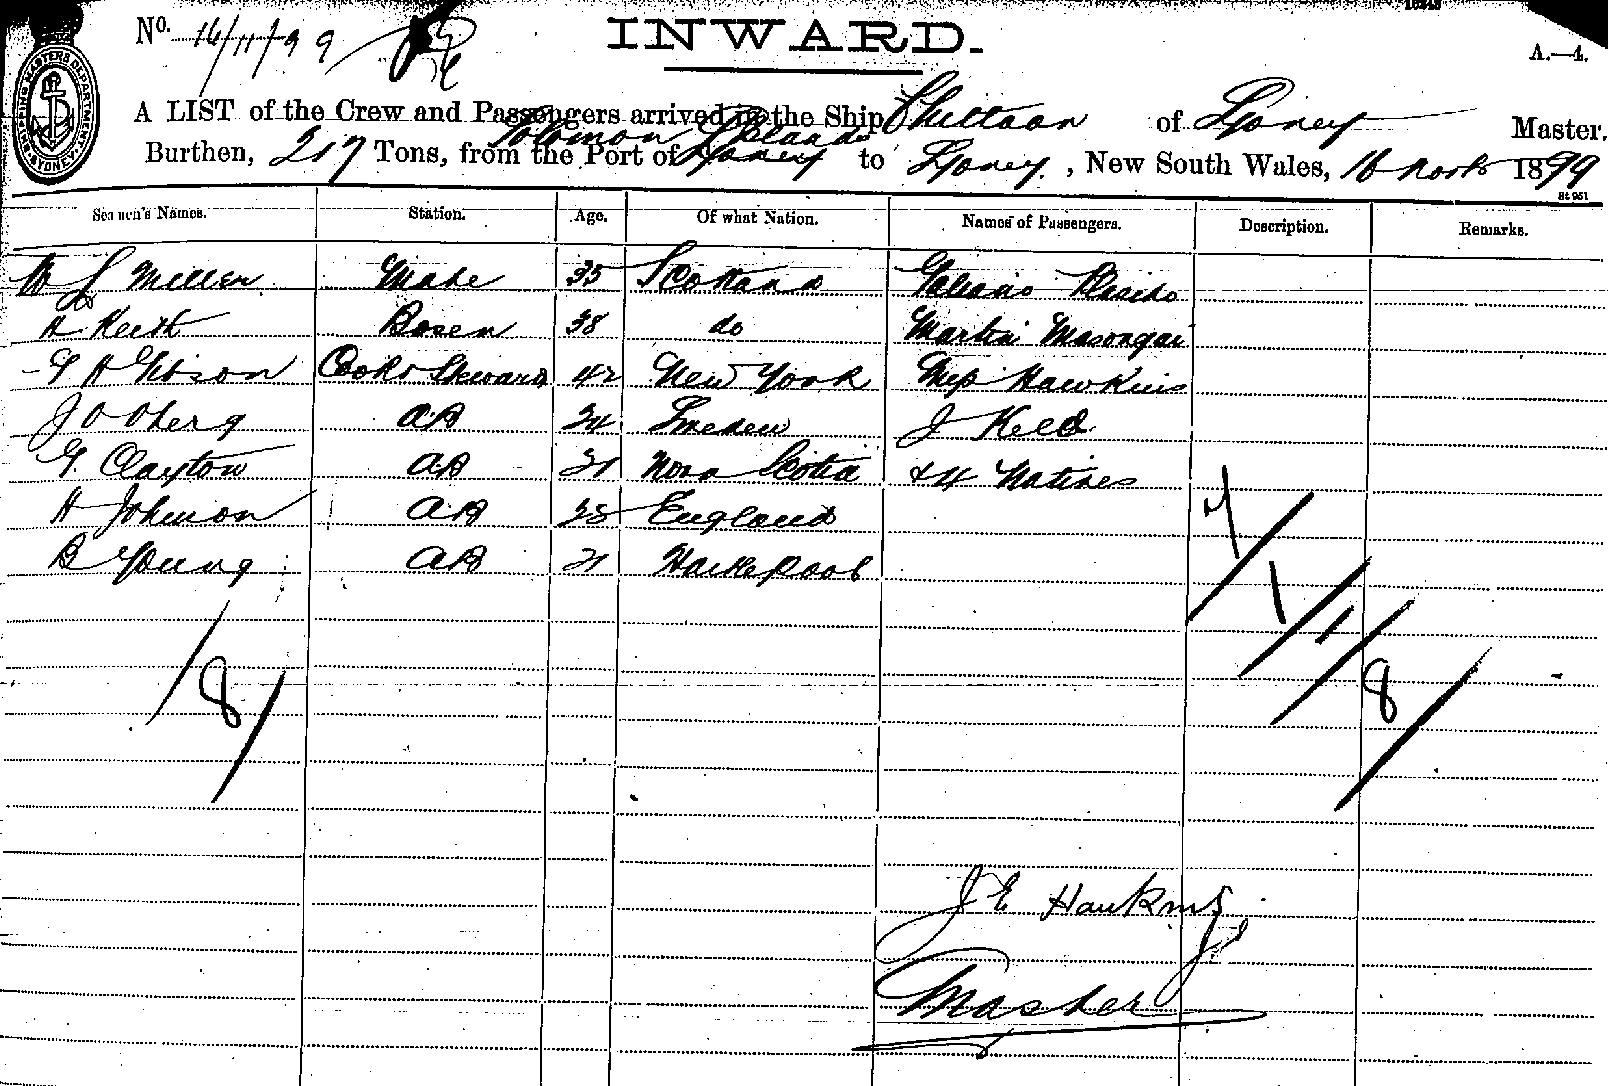 No. 16/11/99
INWARD.
A.—4.
A LIST of the Crew and Passengers arrived in the Ship of Sydney Master.
Solomon Islands
Burthen, 217 Tons, from the Port of Sydney to Sydney, New South Wales, 16 Novb 1899
St 951
Seamen's Names. Station. Age. Of what Nation. Names of Passengers. Description. Remarks.
W S Miller Mate 35 Scotland
A Keith Bosen 38 do Martin
G A Gibson Cook & Steward 42 New York Hawkins
J O Oberg AB 24 Sweden J
G. Clayton AB 21 Nova Scotia & 4 Natives
A Johnson AB 28 England
B Young AB 21
8
8
J E Hawkins
Master
SHIPPING MASTERS DEPARTMENT SYDNEY